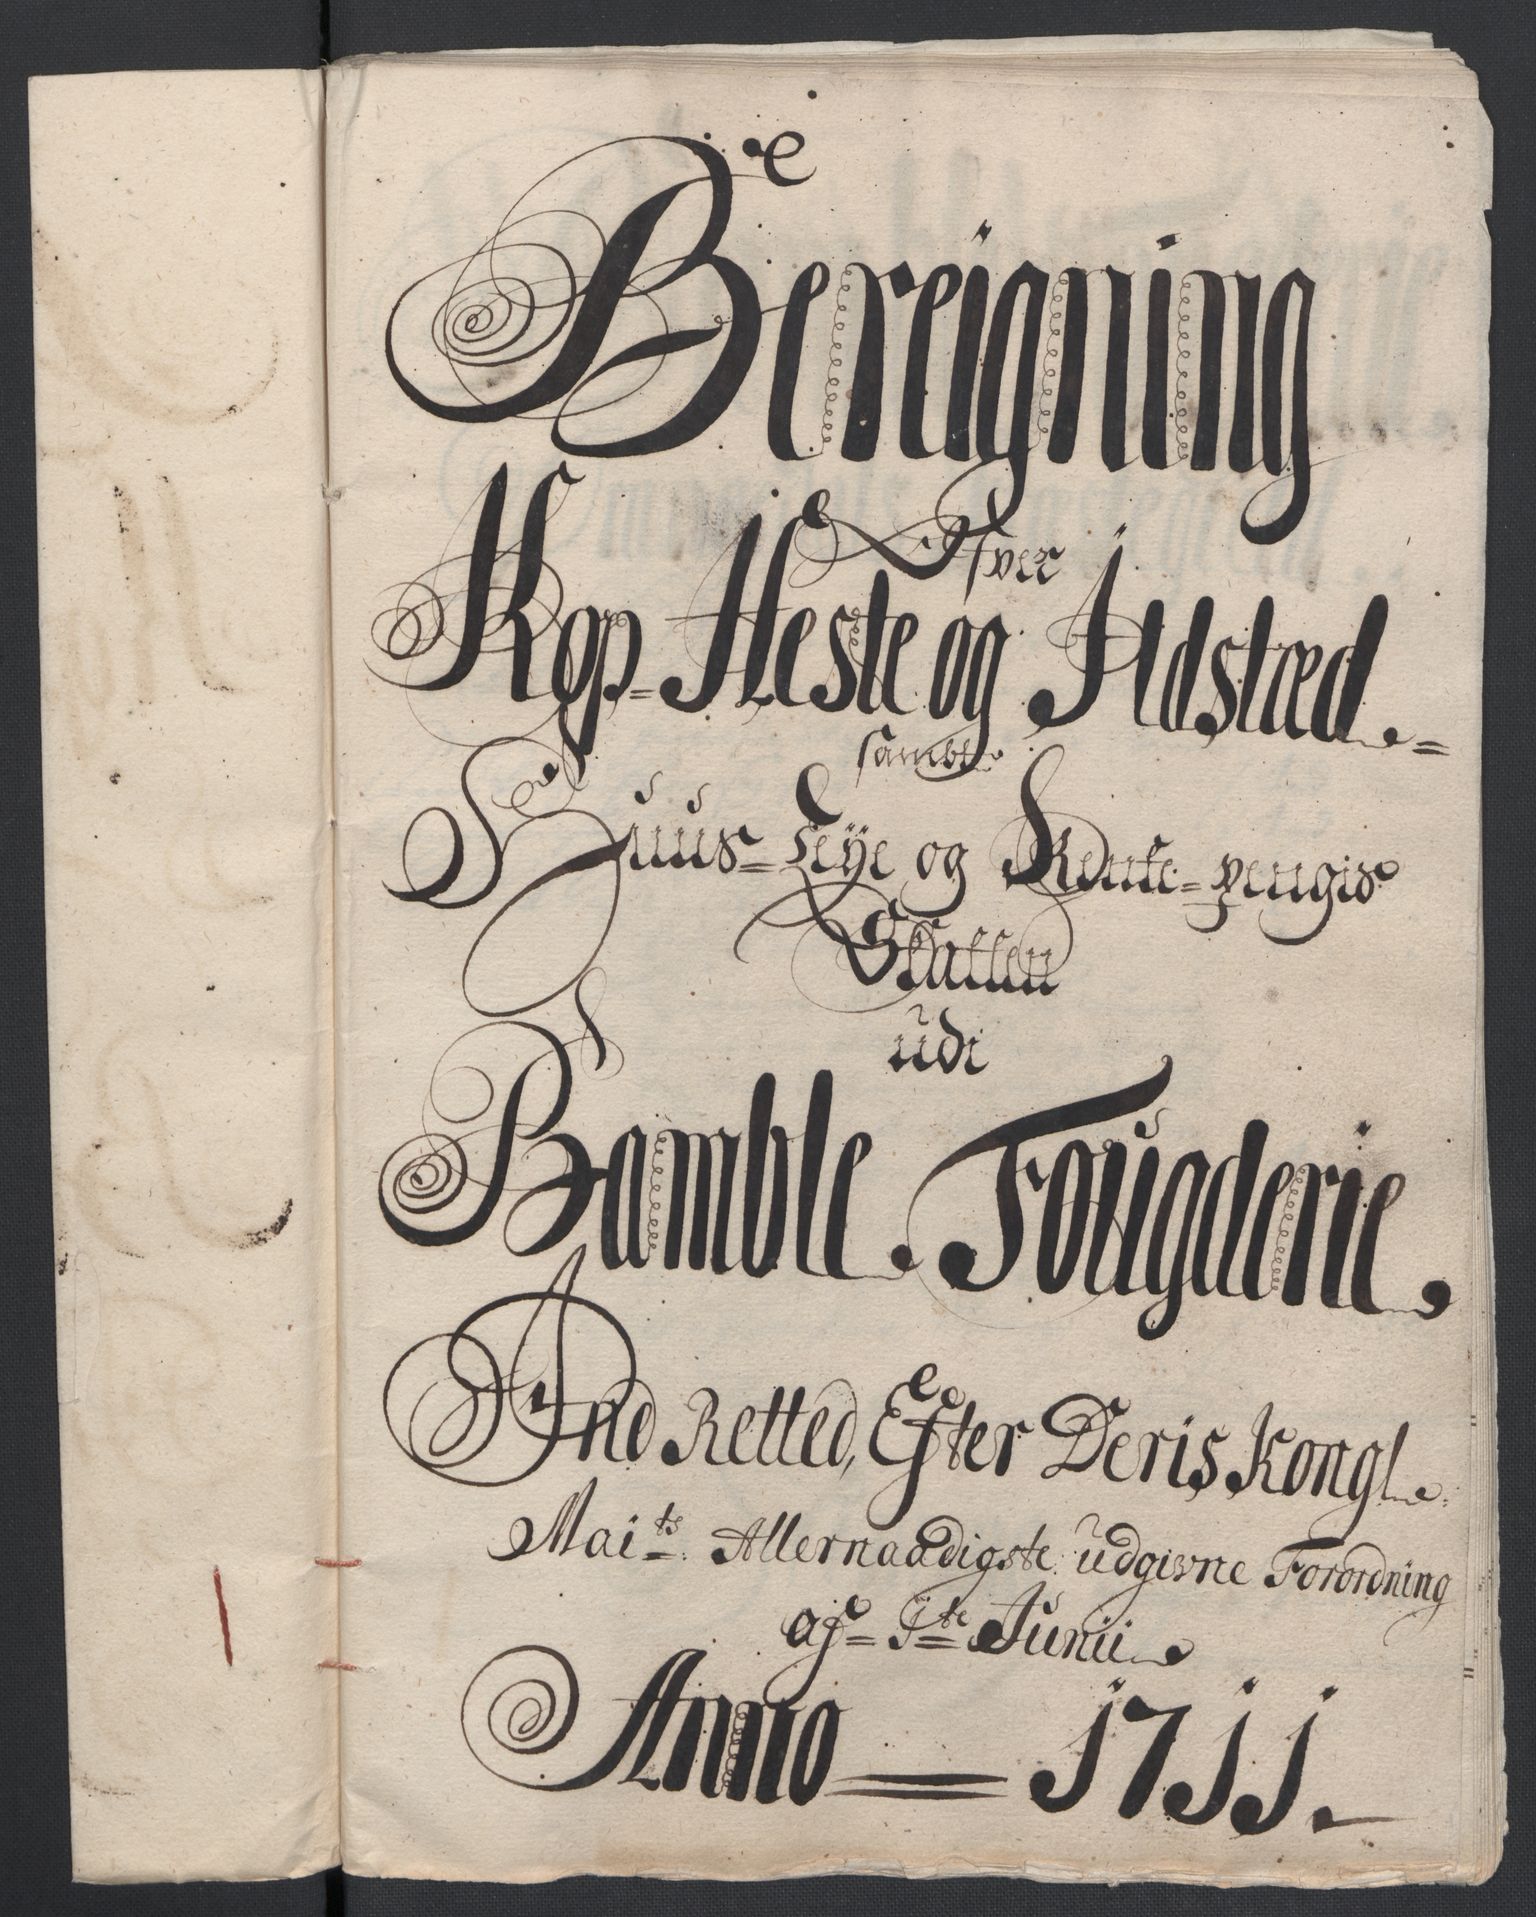 Bereigning
Ofver
Kop- Heste og Ildstæd-
sambt
Huus- Leÿe og Rente-pengis
Skatten
udi
Bamble Fougderie
Ind Retted, Efter Deris Kongl.
Maits: Allernaadigste udgivne Forordning
af 1te Junii
Anno = 1711.